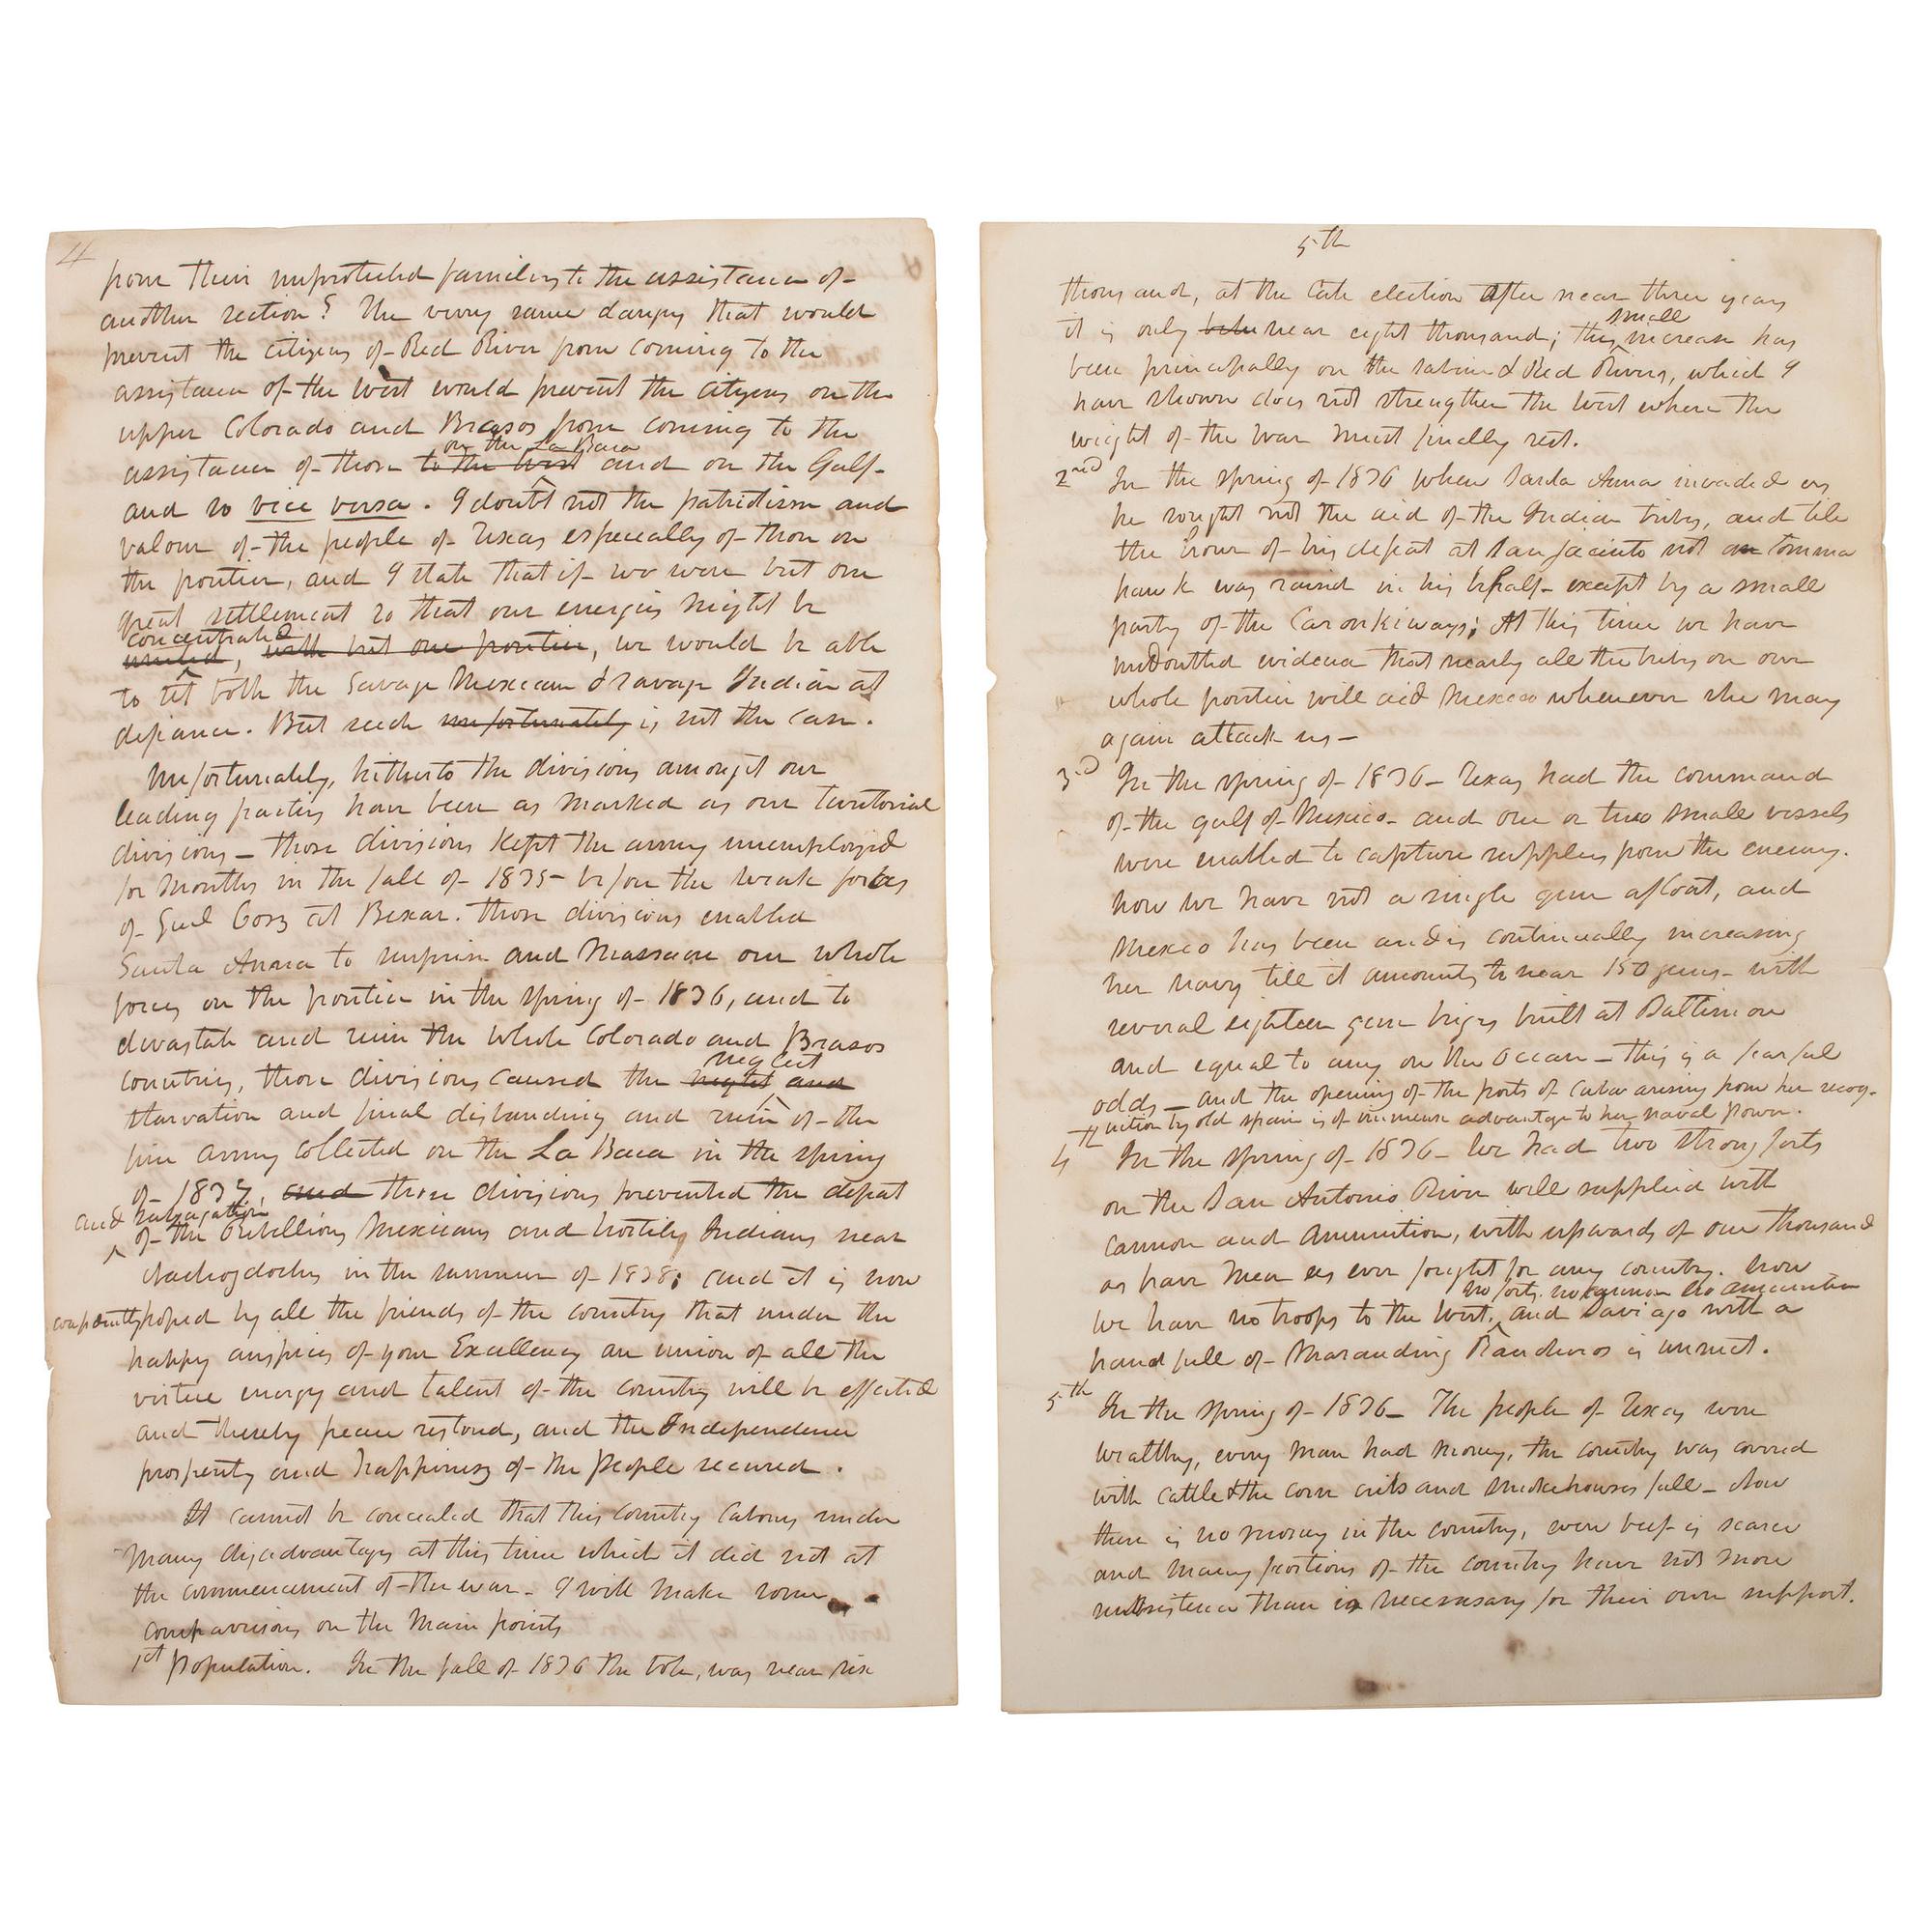 4
from their unprotected families to the assistance of
another section? The very same dangers that would
prevent the citizens of Red River from coming to the
assistance of the west would prevent the citizens on the
upper Colorado and Brasos from coming to the
on the La Baca
assistance of those to the West and on the Gulf
and so vice versa. I doubt not the patriotism and
valour of the people of Texas especially of those on
the frontier, and I state that if we were but one
great settlement so that our energies might be
concentrated
united, with but one frontier, we would be able
to set both the Savage Mexican & savage Indian at
defiance. But such unfortunately is not the case.
Unfortunately, hitherto the divisions amongst our
leading parties have been as marked as our territorial
divisions — those divisions kept the army unemployed
for months in the fall of 1835 before the weak forces
of Genl Cos at Bexar. those divisions enabled
Santa Anna to surprise and Massacre our whole
forces on the frontier in the spring of 1836, and to
devastate and ruin the whole Colorado and Brasos
neglect
countries, those divisions caused the neglect and
starvation and final disbanding and ruin of the
fine army collected on the La Baca in the spring
of 1837, and those divisions prevented the defeat
and subjugation
of the Rebellious Mexicans and hostile Indians near
Nachogdoches in the summer of 1838; and it is now
confidently hoped by all the friends of the country that under the
happy auspices of your Excellency an union of all the
virtue energy and talent of the country will be effected
and thereby peace restored, and the Independence
prosperity and happiness of the people secured.
It cannot be concealed that this country labours under
Many disadvantages at this time which it did not at
the commencement of the war. I will make some
comparisons on the Main points
1st Population. In the fall of 1836 the vote, was near six
5th
thousand, at the late election after near three years
small
it is only near eight thousand; this increase has
been principally on the Sabine & Red Rivers, which I
have shown does not strengthen the West where the
weight of the war must finally rest.
2nd In the spring of 1836 when Santa Anna invaded us
he sought not the aid of the Indian tribes, and till
the hour of his defeat at San Jacinto not a tomma
hawk was raised in his behalf except by a small
party of the Caronkiways; At this time we have
undoubted evidence that nearly all the tribes on our
whole frontier will aid Mexico whenever she may
again attack us —
3.d In the spring of 1836 — Texas had the command
of the gulf of Mexico — and one or two small vessels
were enabled to capture supplies from the enemy.
now we have not a single gun afloat, and
Mexico has been and is continually increasing
her navy till it amounts to near 150 guns — with
several eighteen gun brigs built at Baltimore
and equal to any on the Ocean — this is a fearful
odds — and the opening of the ports of Cuba arising from her recog-
nition by old spain is of immense advantage to her naval power.
4th In the spring of 1836 — We had two strong forts
on the San Antonio River well supplied with
cannon and ammunition, with upwards of one thousand
as brave men as ever fought for any country. Now
no forts no cannon no ammunition
we have no troops to the West, and Saviago with a
hand full of Marauding Rancheros is unmet.
5th In the spring of 1836 — The people of Texas were
wealthy, every man had money, the country was covered
with cattle & the corn cribs and smokehouses full — Now
there is no money in the country, even beef is scarce
and many portions of the country have not more
subsistence than is necessary for their own support.